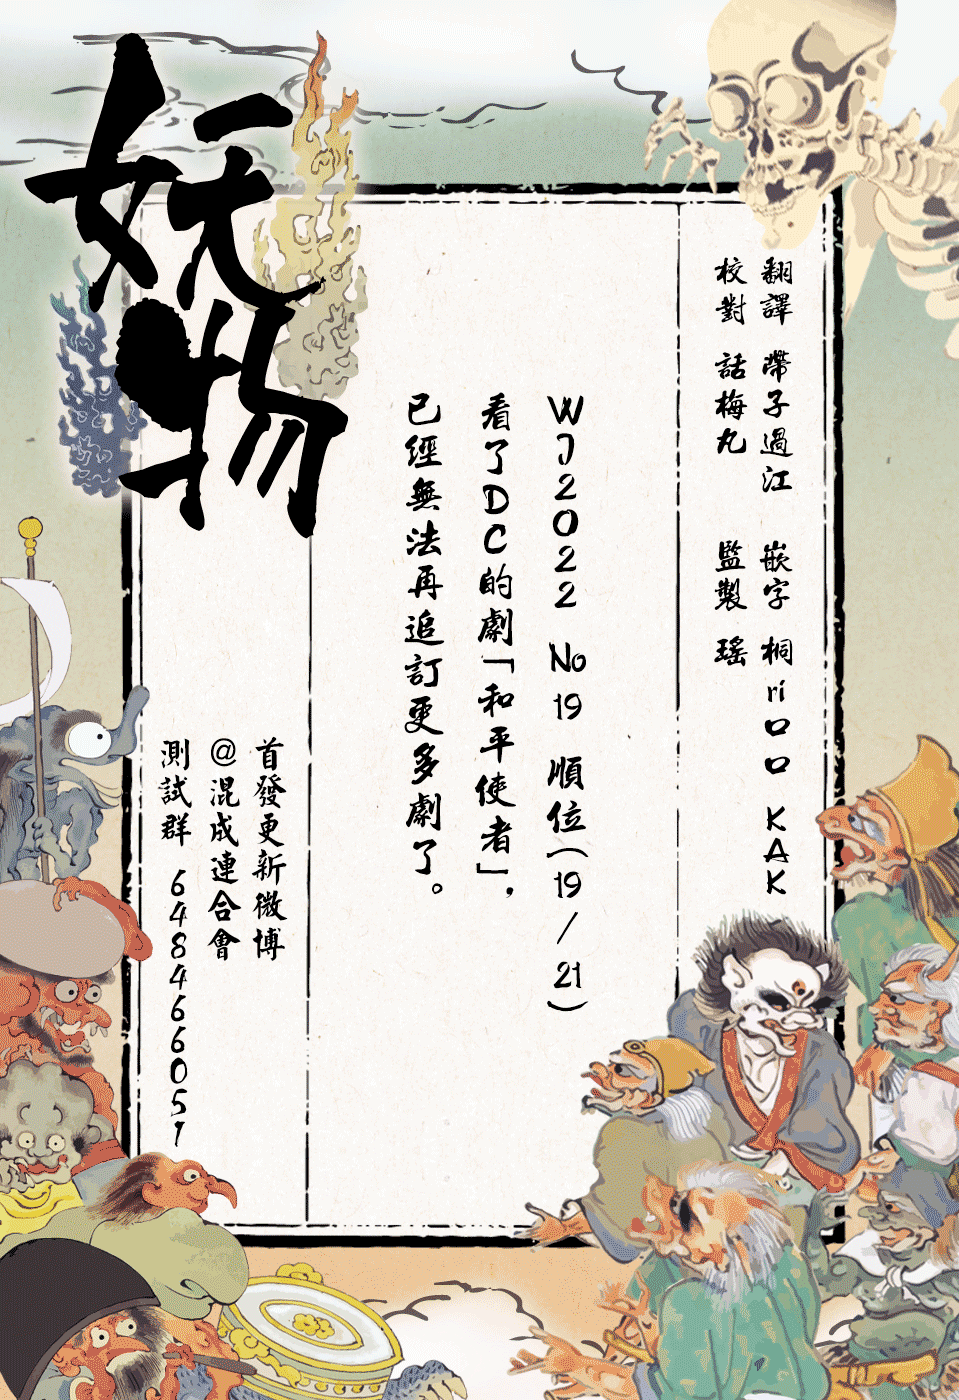 妖物
翻譯 帶子過江 嵌字 桐ri口口 KAK
校對 話梅丸 監製 瑤
WJ2022 No19 順位(19/21)
看了DC的劇「和平使者」,
已經無法再追訂更多劇了。
首發更新微博
@混成連合會
測試群 648466051